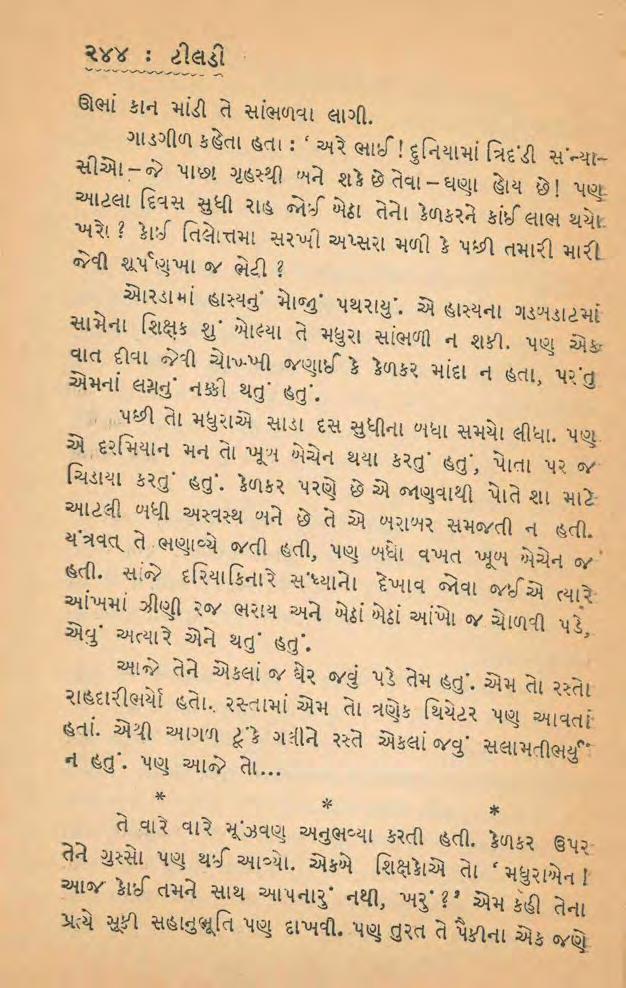 ૨૪૪ : ટીલડી
ઊભાં કાન માંડી તે સાંભળવા લાગી.
ગાડગીળ કહેતા હતા : ‘ અરે ભાઈ ! દુનિયામાં ત્રિદંડી સંન્યા-
સીઓ – જે પાછા ગૃહસ્થી બને શકે છે તેવા – ઘણા હોય છે! પણ
આટલા દિવસ સુધી રાહ જોઈ બેઠા તેનો કેળકરને કાંઈ લાભ થયો
ખરો ? કોઈ તિલોત્તમા સરખી અપ્સરા મળી કે પછી તમારી મારી
જેવી શૂર્પણખા જ ભેટી ?
ઓરડામાં હાસ્યનું મોજું પથરાયું. એ હાસ્યના ગડબડાટમાં
સામેના શિક્ષક શું બોલ્યા તે મધુરા સાંભળી ન શકી. પણ એક
વાત દીવા જેવી ચોખ્ખી જણાઈ કે કેળકર માંદા ન હતા, પરંતુ
એમનાં લગ્નનું નક્કી થતું હતું.
પછી તો મધુરાએ સાડા દસ સુધીના બધા સમયો લીધા. પણ
એ દરમિયાન મન તો ખૂબ બેચેન થયા કરતું હતું, પોતા પર જ
ચિડાયા કરતું હતું. કેળકર પરણે છે એ જાણવાથી પોતે શા માટે
આટલી બધી અસ્વસ્થ બને છે તે એ બરાબર સમજતી ન હતી.
યંત્રવત્ તે ભણાવ્યે જતી હતી, પણ બધો વખત ખૂબ બેચેન જ
હતી. સાંજે દરિયાકિનારે સંધ્યાનો દેખાવ જોવા જઈએ ત્યારે
આંખમાં ઝીણી રજ ભરાય અને બેઠાં બેઠાં આંખો જ ચોળવી પડે,
એવું અત્યારે એને થતું હતું.
આજે તેને એકલાં જ ઘેર જવું પડે તેમ હતું. એમ તો રસ્તો
રાહદારીભર્યો હતો. રસ્તામાં એમ તો ત્રણેક થિયેટર પણ આવતાં
હતાં. એથી આગળ ટૂંકે ગલીને રસ્તે એકલાં જવું સલામતીભર્યું
ન હતું. પણ આજે તો...
* * *
તે વારે વારે મૂંઝવણ અનુભવ્યા કરતી હતી. કેળકર ઉપર
તેને ગુસ્સો પણ થઈ આવ્યો. એકબે શિક્ષકોએ તો ‘ મધુરાબેન !
આજ કોઈ તમને સાથ આપનારું નથી, ખરું ?’ એમ કહી તેના
પ્રત્યે સૂકી સહાનુભૂતિ પણ દાખવી. પણ તુરત તે પૈકીના એક જણે